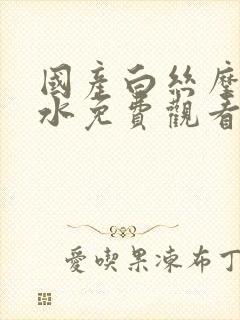 國產白絲摩
水免費觀看
愛喫果凍布丁